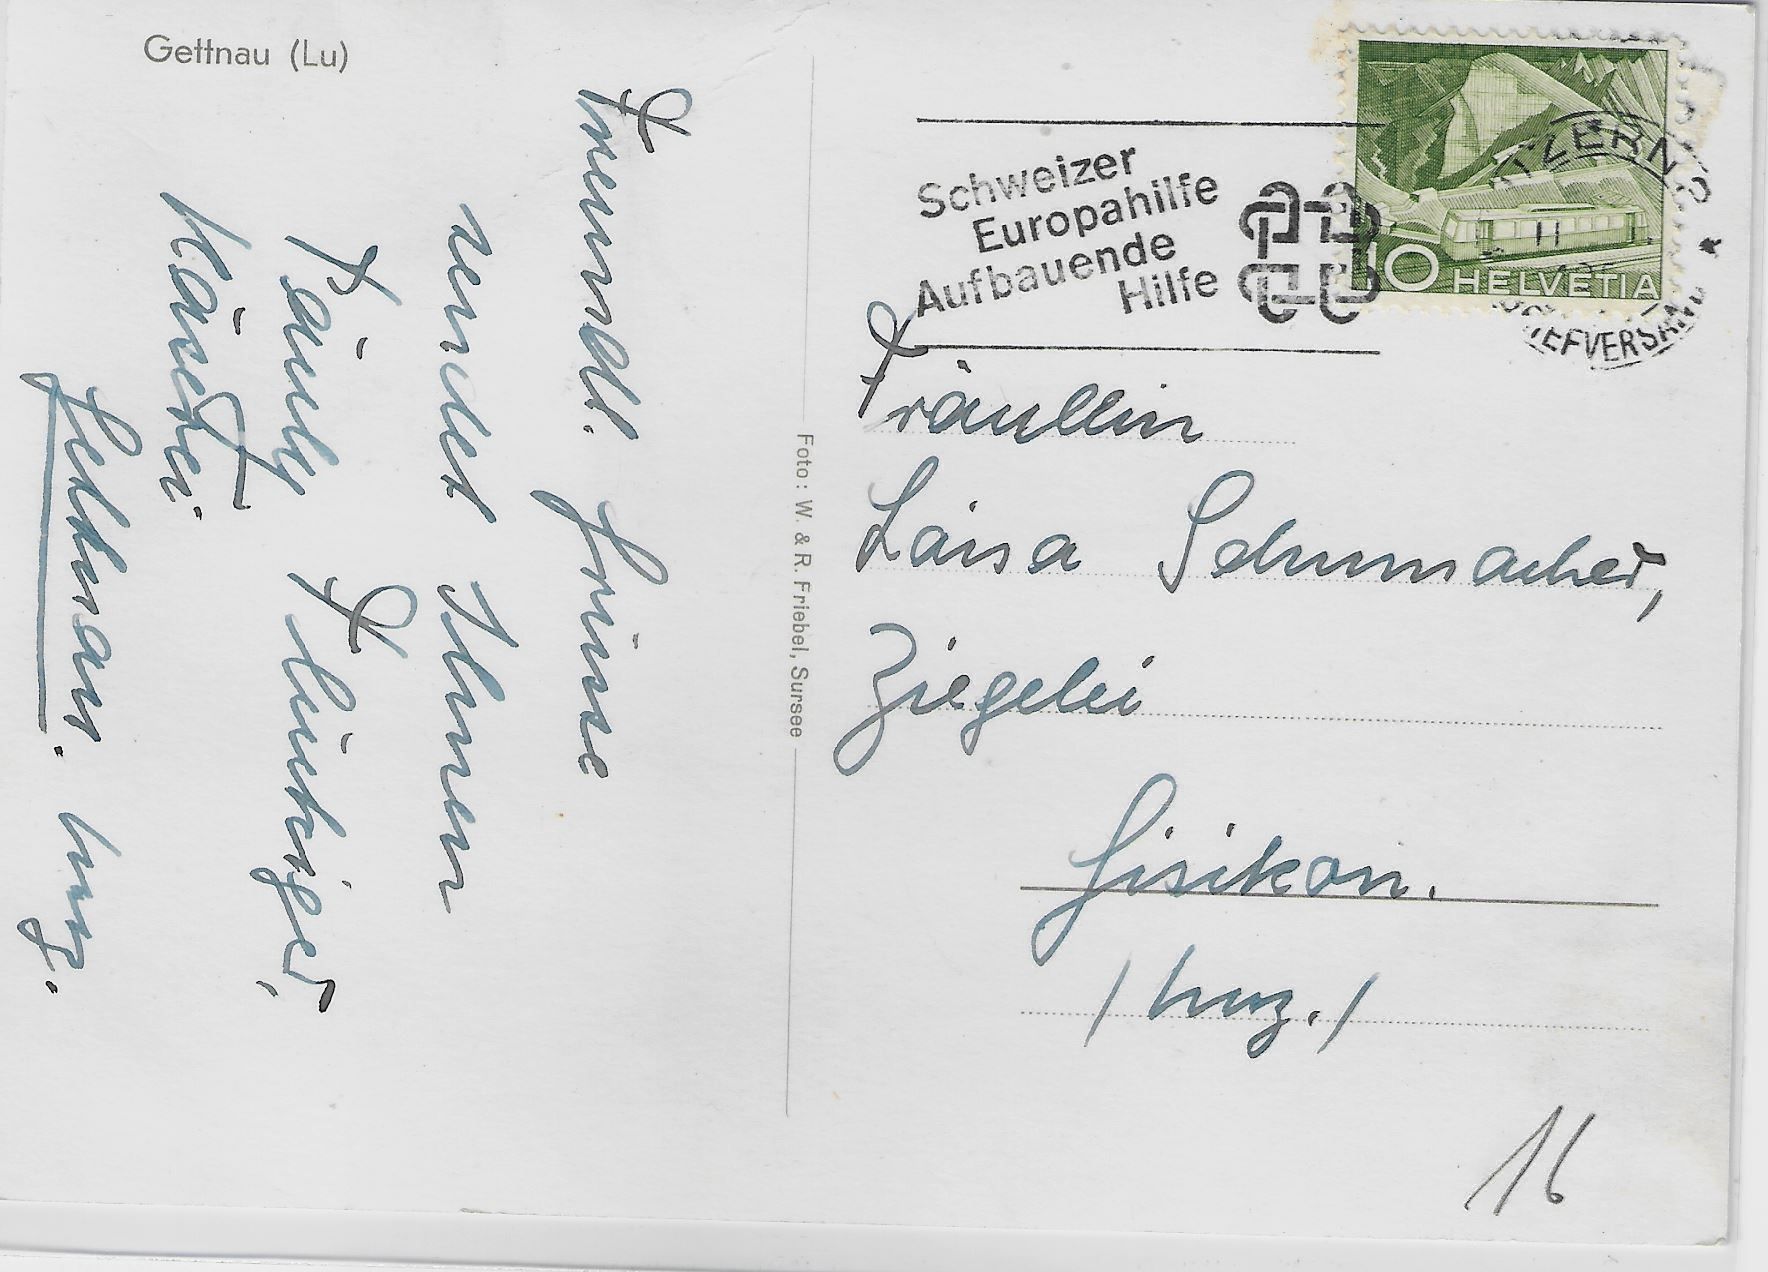 Gettnau (Lu)
Freundl. Grüsse
sendet Ihnen
Fam. Flückiger,
Käserei.
Gettnau. Luz.
Foto: W. & R. Friebel, Sursee
Schweizer
Europahilfe
Aufbauende
Hilfe
10 HELVETIA
LUZERN 2
BRIEFVERSAND
Fräullein
Luisa Schumacher,
Ziegelei
Gisikon.
/Luz./
16